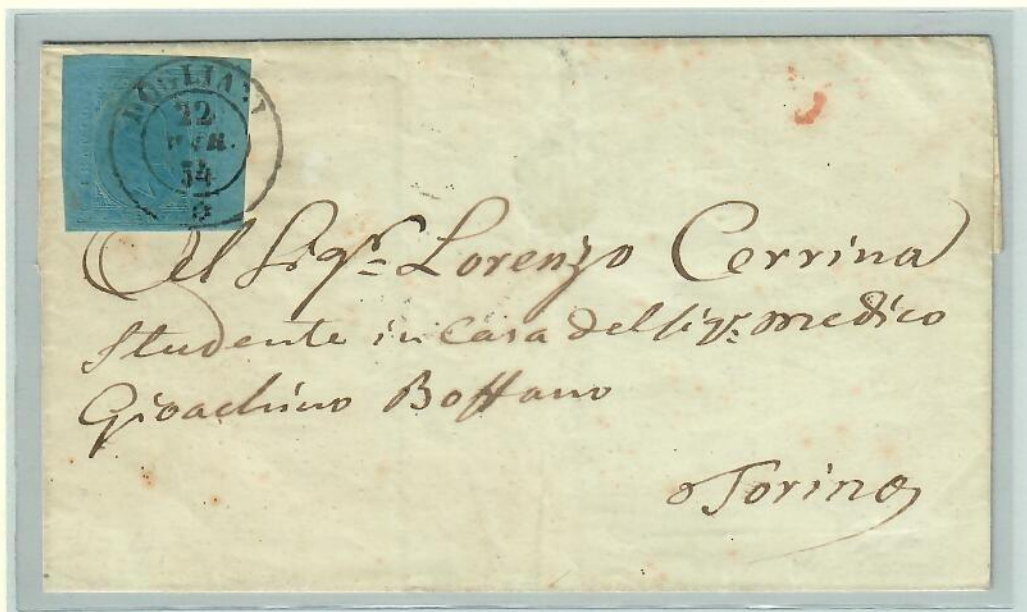 DOGLIANI
22
54
Al Sig.r Lorenzo Cerrina
Studente in Casa del Sigr. medico
Gioachino Boffano
Torino